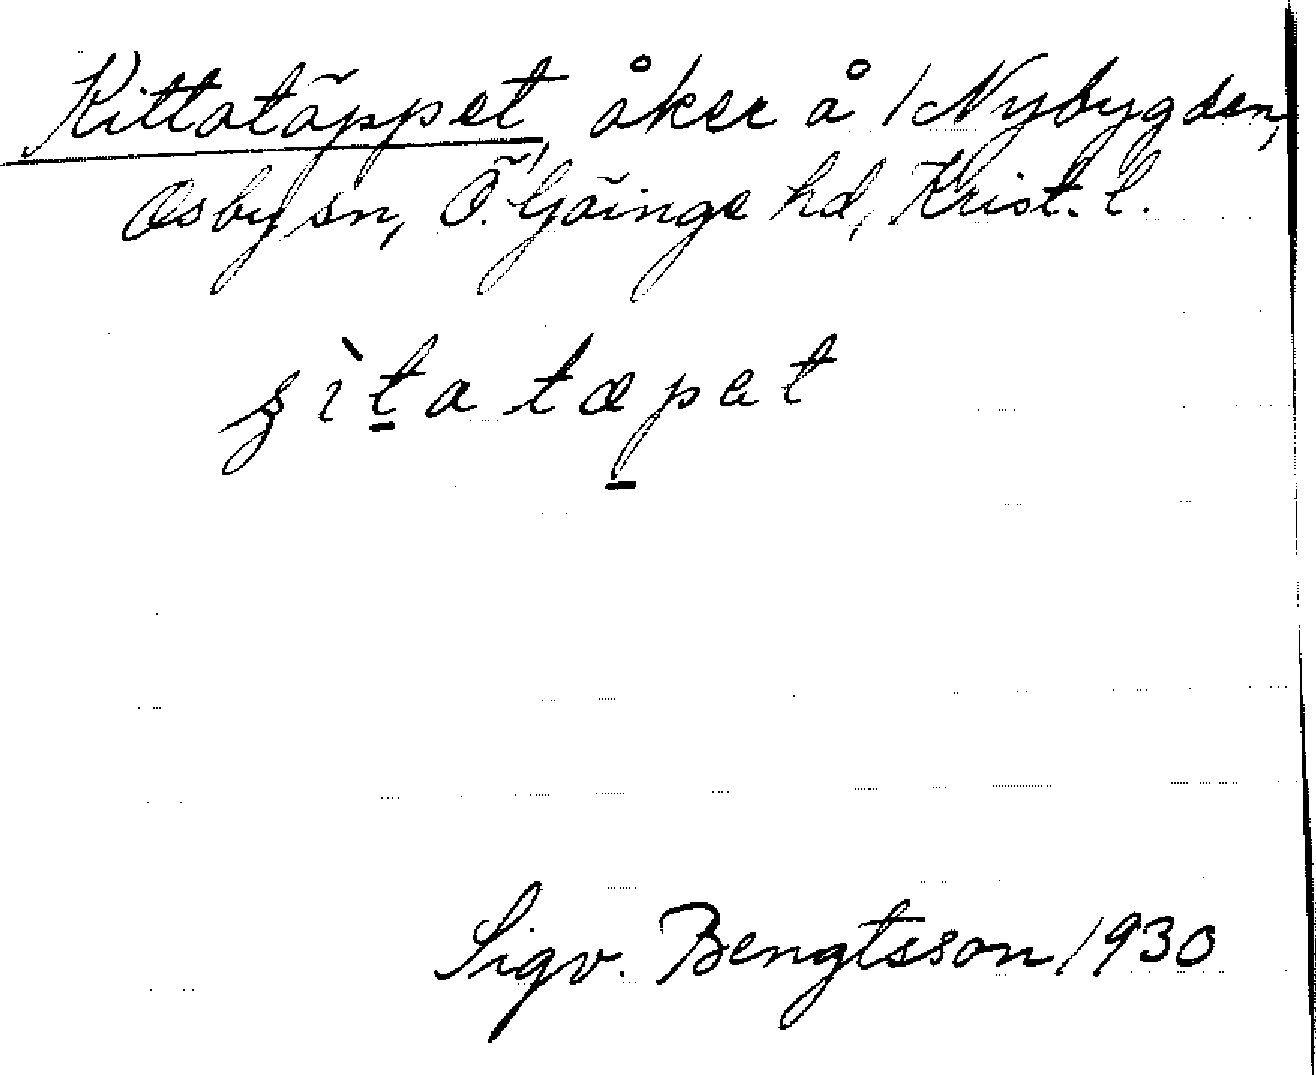 Kittatäppet, åker å 1 Nybygden,
Osby sn, Ö. Göinge hd, Krist. l.
tæpet
Sigv. Bengtsson 1930